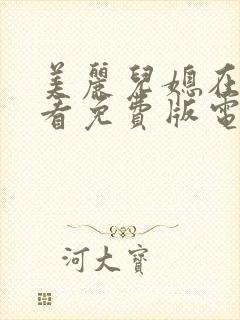 美麗兒媳在
看免費版電
河大寶